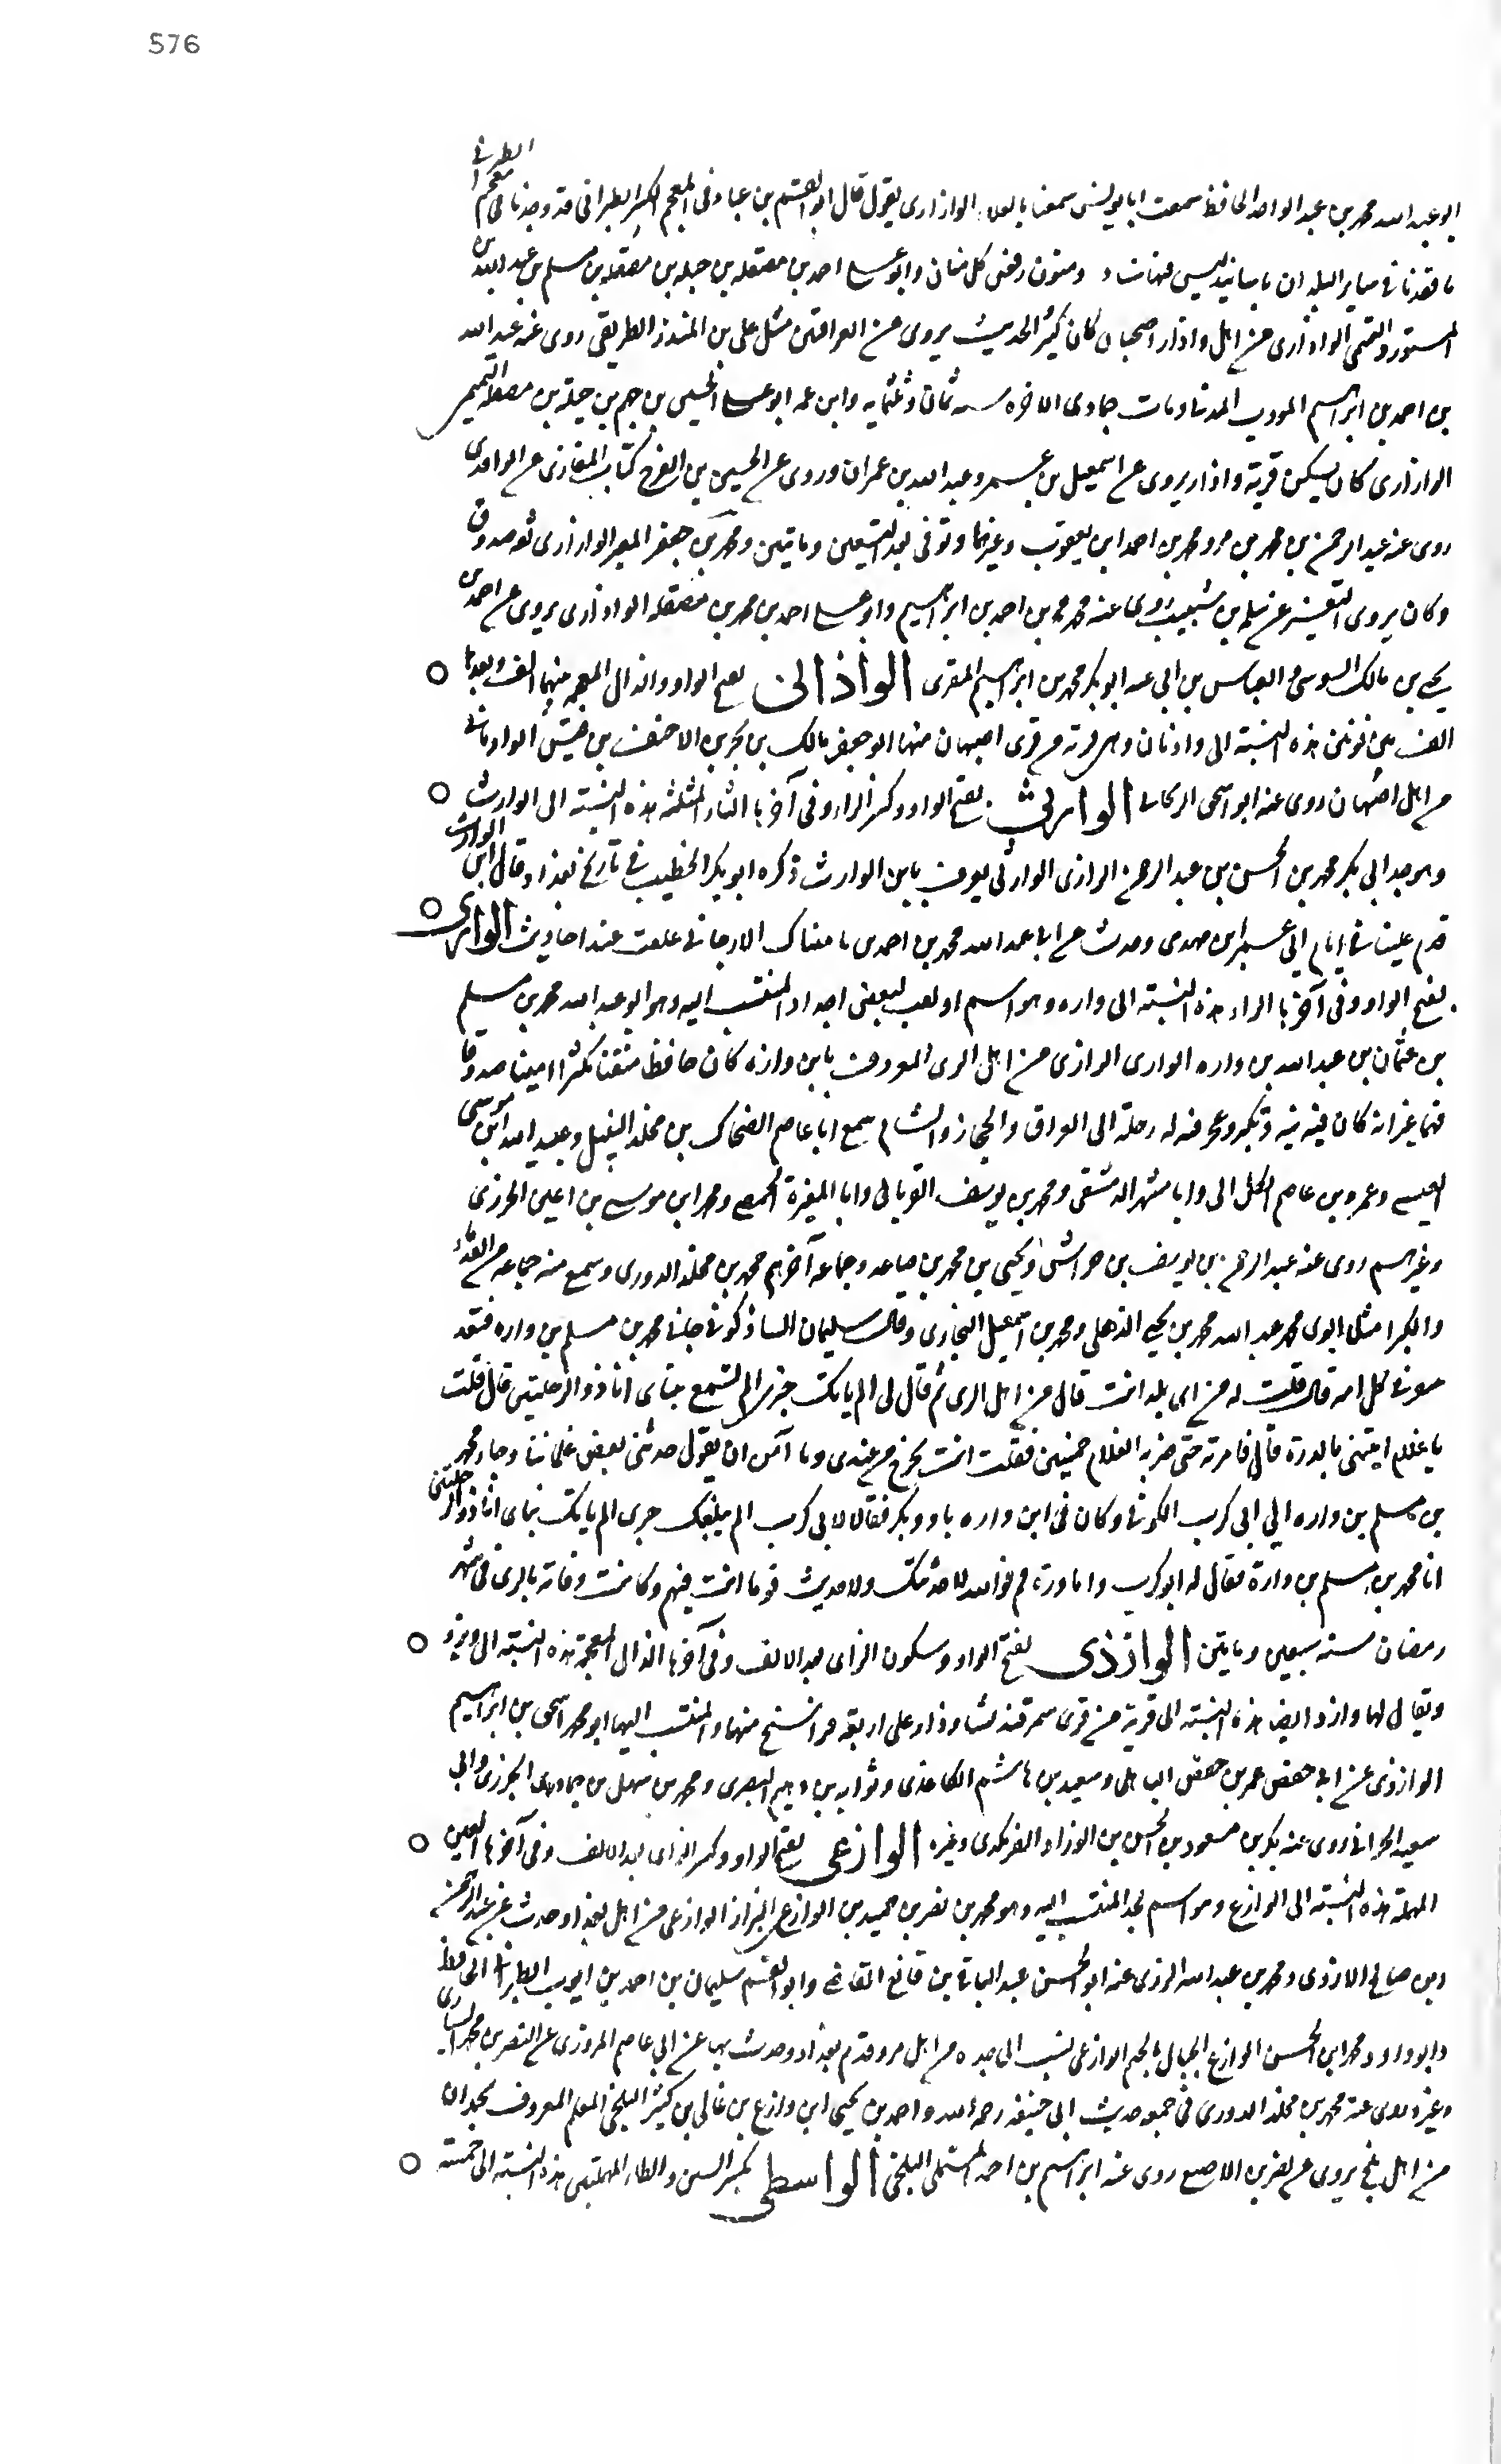 576
الطبرانى
ابو عبد الله محمد بن عبد الواحد الحافظ سمعت ابا يونس سمعنا بالعلا الواذارى يقول قال ابو القسم بن عباد فى المعجم الكبير الطبرانى قد وجدنا فى معجم
ما فقدنا فى ساير البلدان باسانيد ليس فيها ومتون وابو على احمد بن معقله بن جبله بن مصقله بن مسلم بن عبد الله بن
المستورد التميمى الواذارى من اهل واذار اصبهان كان كثير الحديث يروى عن العراقين مثل على بن المنذر الطريقى روى عنه عبد الله
بن احمد بن ابراهيم المودب المدينى ومات جمادى الاخره سنه ثمان وثلثمايه وابن عمه ابو على الحسين بن جهم بن جبلة بن مصقله التميمى
الواذارى كان يسكن قرية واذار يروى عن اسمعيل بن عمرو وعبد الله بن عمران وروى عن الحسين بن الفرج كتاب المغازى عن الواقدى
روى عنه عبد الرحمن بن محمد بن ومحمد بن احمد ابن يعقوب وغيرهما وتوفى بعد التسعين وماتين ومحمد بن جعفر الواذارى ثقه صدوق
وكان يروى التفسير عن سلمه بن شبيب روى عنه محمد بن احمد بن ابراهيم وابو على احمد بن محمد بن مصقله الواذارى يروى عن احمد بن
يحيى بن مالك السوسى والعباس بن ابى عنه ابو بكر محمد بن ابراهيم المقرى الواذانى بفتح الواو والذال المعجمه بينهما الف وبعدها
الف بين نونين هذه النسبة الى واذنان وهى قريه من قرى اصبهان منها ابو جعفر مالك بن بحر بن الاحنف بن قيس الواذنانى
من اهل اصبهان روى عنه ابو اسحق الوارثى بفتح الواو وكسر الراء وفى آخرها الثاء المثلثه هذه النسبته الى الوارث
وهو جد ابى بكر محمد بن الحسن بن عبد الرحمن الرازى الوارثى يعرف بابن الوارث ذكره ابو بكر الخطيب فى تاريخ بغداد وقال ابن الوارث
قدم علينا فى ايام ابى عمر ابن مهدى وحدث عن ابى عبد الله محمد بن احمد الارجانى علقت عنه احاديث الوارى
بفتح الواو وفى آخرها الراء هذه النسبته الى واره وهو اسم او لقب لبعض اجداد المنتسب اليه وهو ابو عبد الله محمد بن مسلم
بن عثمان بن عبد الله بن واره الوارى الرازى من اهل الرى المعروف بابن وارة كان حافظا متقنا مكثرا امينا صدوقا
فهما غير انه كان فيه تيه وتكبر وعجرفه له رحلة الى العراق والحجاز والشام سمع ابا عاصم الضحاك بن مخلد النبيل وعبيد الله ابن موسى
العبسى وعمرو بن عاصم الكلابى وابا مسهر الدمشقى ومحمد بن يوسف الفريابى وابا المغيرة الحمصى ومحمد ابن موسى بن اعين الجزرى
وغيرهم روى عنه عبد الرحمن بن يوسف بن خراش ويحيى بن محمد بن صاعد وجماعه آخرهم محمد بن مخلد الدورى وسمع منه جماعه من القدماء
والكبرا مثل محمد بن يحيى الذهلى ومحمد بن اسمعيل البخارى وقال سليمان الشاذكونى جانى محمد بن مسلم بن واره فقعد
فى كلامه قال قلت له من اى بلد انت قال من اهل الرى ثم قال لى الم ياتك خبرى الم تسمع بنباى انا ذو الرحلتين قال قلت
يا غلام ايتنى بالدرة قال فامرته حتى ضربه الغلام خمسين فقلت انت تخرج من عندى وما آمن ان يقول حدثنى بعض غلماننا وجاء محمد
بن مسلم بن واره الى ابى كريب الكوفى وكان فى ابن واره باو وتكبر فقال لابى كريب الم يبلغك خبرى الم ياتك نباى انا ذو الرحلتين
انا محمد بن مسلم بن وارة فقال له ابو كريب وارة وما وارة قم فوالله لا حدثتك ولا حديث قوما انت فيهم وكانت وفاته بالرى فى شهر
رمضان سنه سبعين وماتين الوازذى بفتح الواو وسكون الزاى بعد الالف وفى آخرها الذال المعجمة هذه النسبته الى ويزذ
ويقال لها وازذ ايضا هذه النسبته الى قرية من قرى سمرقند على اربعة فراسخ منها والمنتسب اليها ابو محمد اسحق بن ابراهيم
الوازذى عن ابى حفص عمر بن حفص الباهلى وسعيد بن هاشم الكاغدى البصرى ومحمد بن سهل بن الجزرى وابى
سعيد الحرانى روى عنه بكر بن مسعود بن الحسن بن الوراد وغيره الوازعى بفتح الواو وكسر الزاى بعد الالف وفى آخرها العين
المهملة هذه النسبته الى الوازع وهو اسم لجد المنتسب اليه وهو محمد بن نصر بن حميد بن الوازع البزاز الوازعى من اهل بغداد حدث عن عبد الرحمن
بن صالح الازدى ومحمد بن عبد الله الرزى عنه ابو الحسن عبد الباقى بن قانع القاضى وابو القسم سليمان بن احمد بن ايوب الطبرانى الحافظ
وابو داود محمد ابن الحسن الوازع الجبال بالجيم الوازعى نسب الى جده من اهل مرو قدم بغداد وحدث بها عن ابى عاصم المروزى عن النضر بن محمد
وغيره روى عنه محمد بن مخلد الدورى فى جمعه حديث ابى حنيفه رحمه الله واحمد بن يحيى ابن وازع بن غالى بن كثير البلخى المعلم المعروف
من اهل بلخ يروى عن روى عنه ابراهيم بن احمد المستملى البلخى الواسطى بكسر السين والطاء المهملتين هذه النسبته الى خمسة